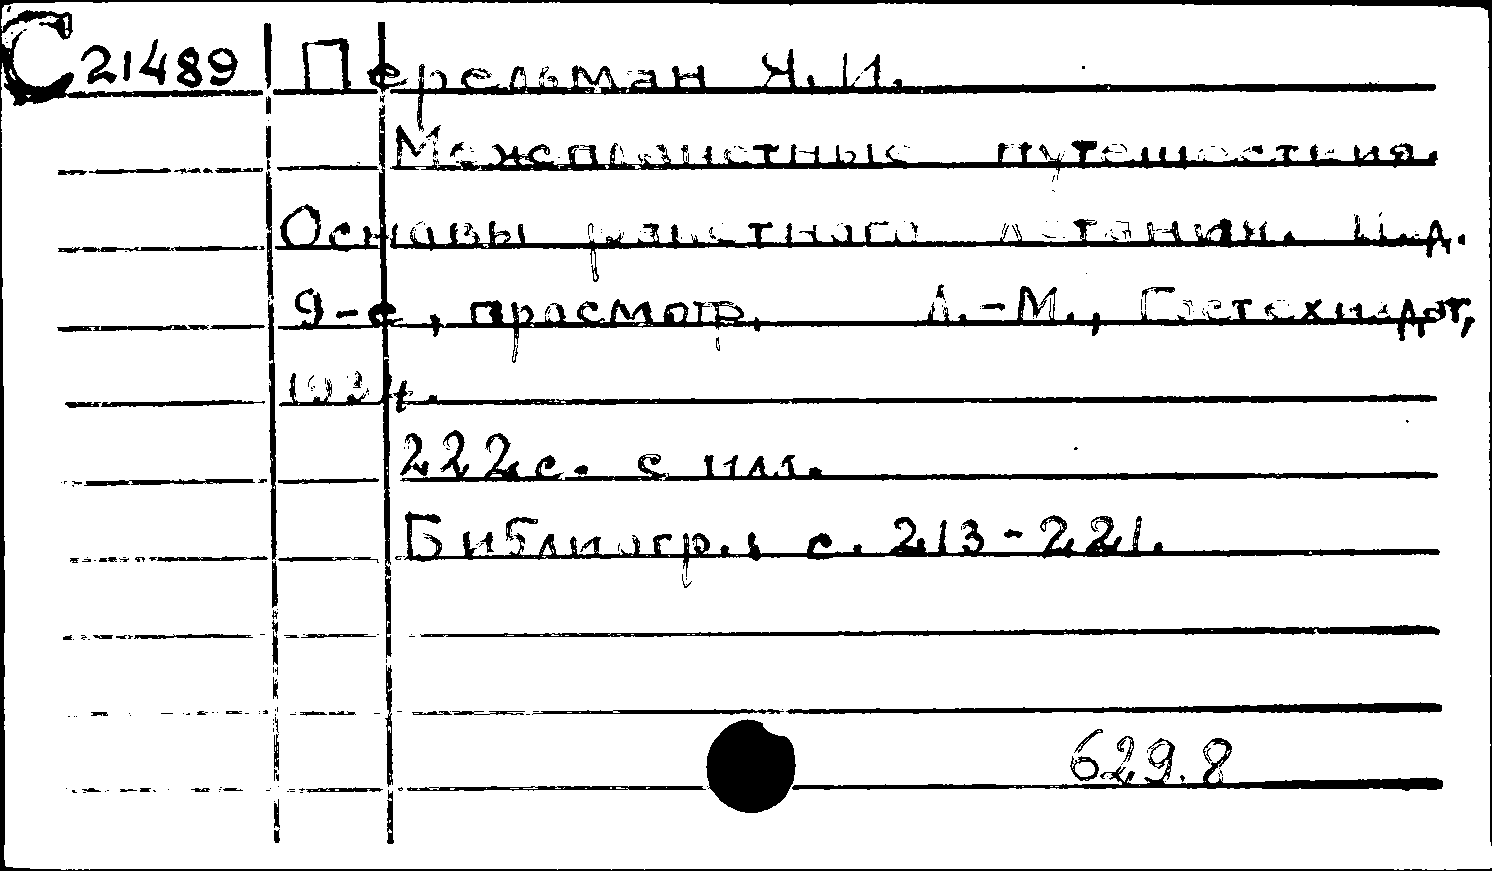 С 21489 Перельман Я. И.
Межпланетные путешествия.
Основы ракетного летания. Изд.
9-е, просмотр. Л.-М., Гостехиздат,
1934.
222 с. с илл.
Библиогр.: с. 213-221.
629.8